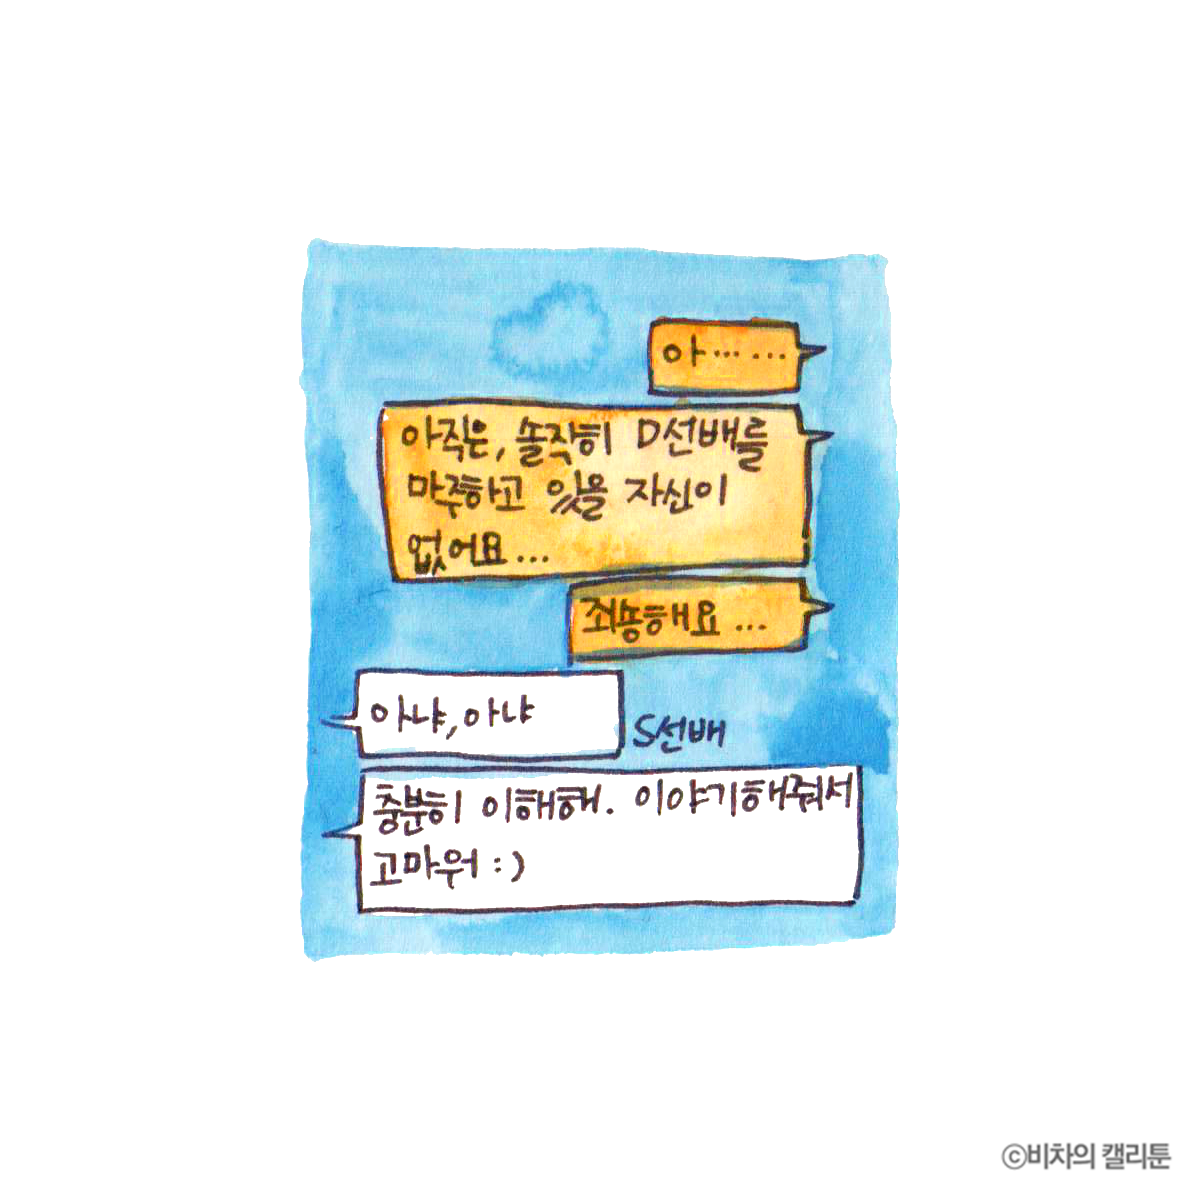 아… …
아직은, 솔직히 D선배를
마주하고 있을 자신이
없어요...
죄송해요 ...
아냐, 아냐
S선배
충분히 이해해. 이야기해줘서
고마워 :)
©비차의 캘리툰